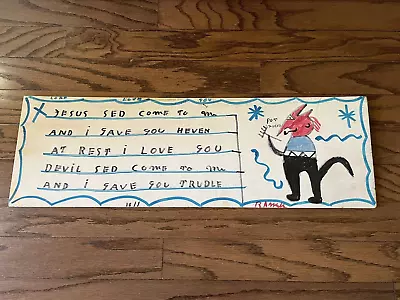 LORD LOVE YOU
JESUS SED COME TO me
AND i GAVE YOU HEVEN
AT REST i LOVE YOU
DEVIL SED COME TO me
AND i GAVE YOU TRUDLE
POT
R.A. Miller